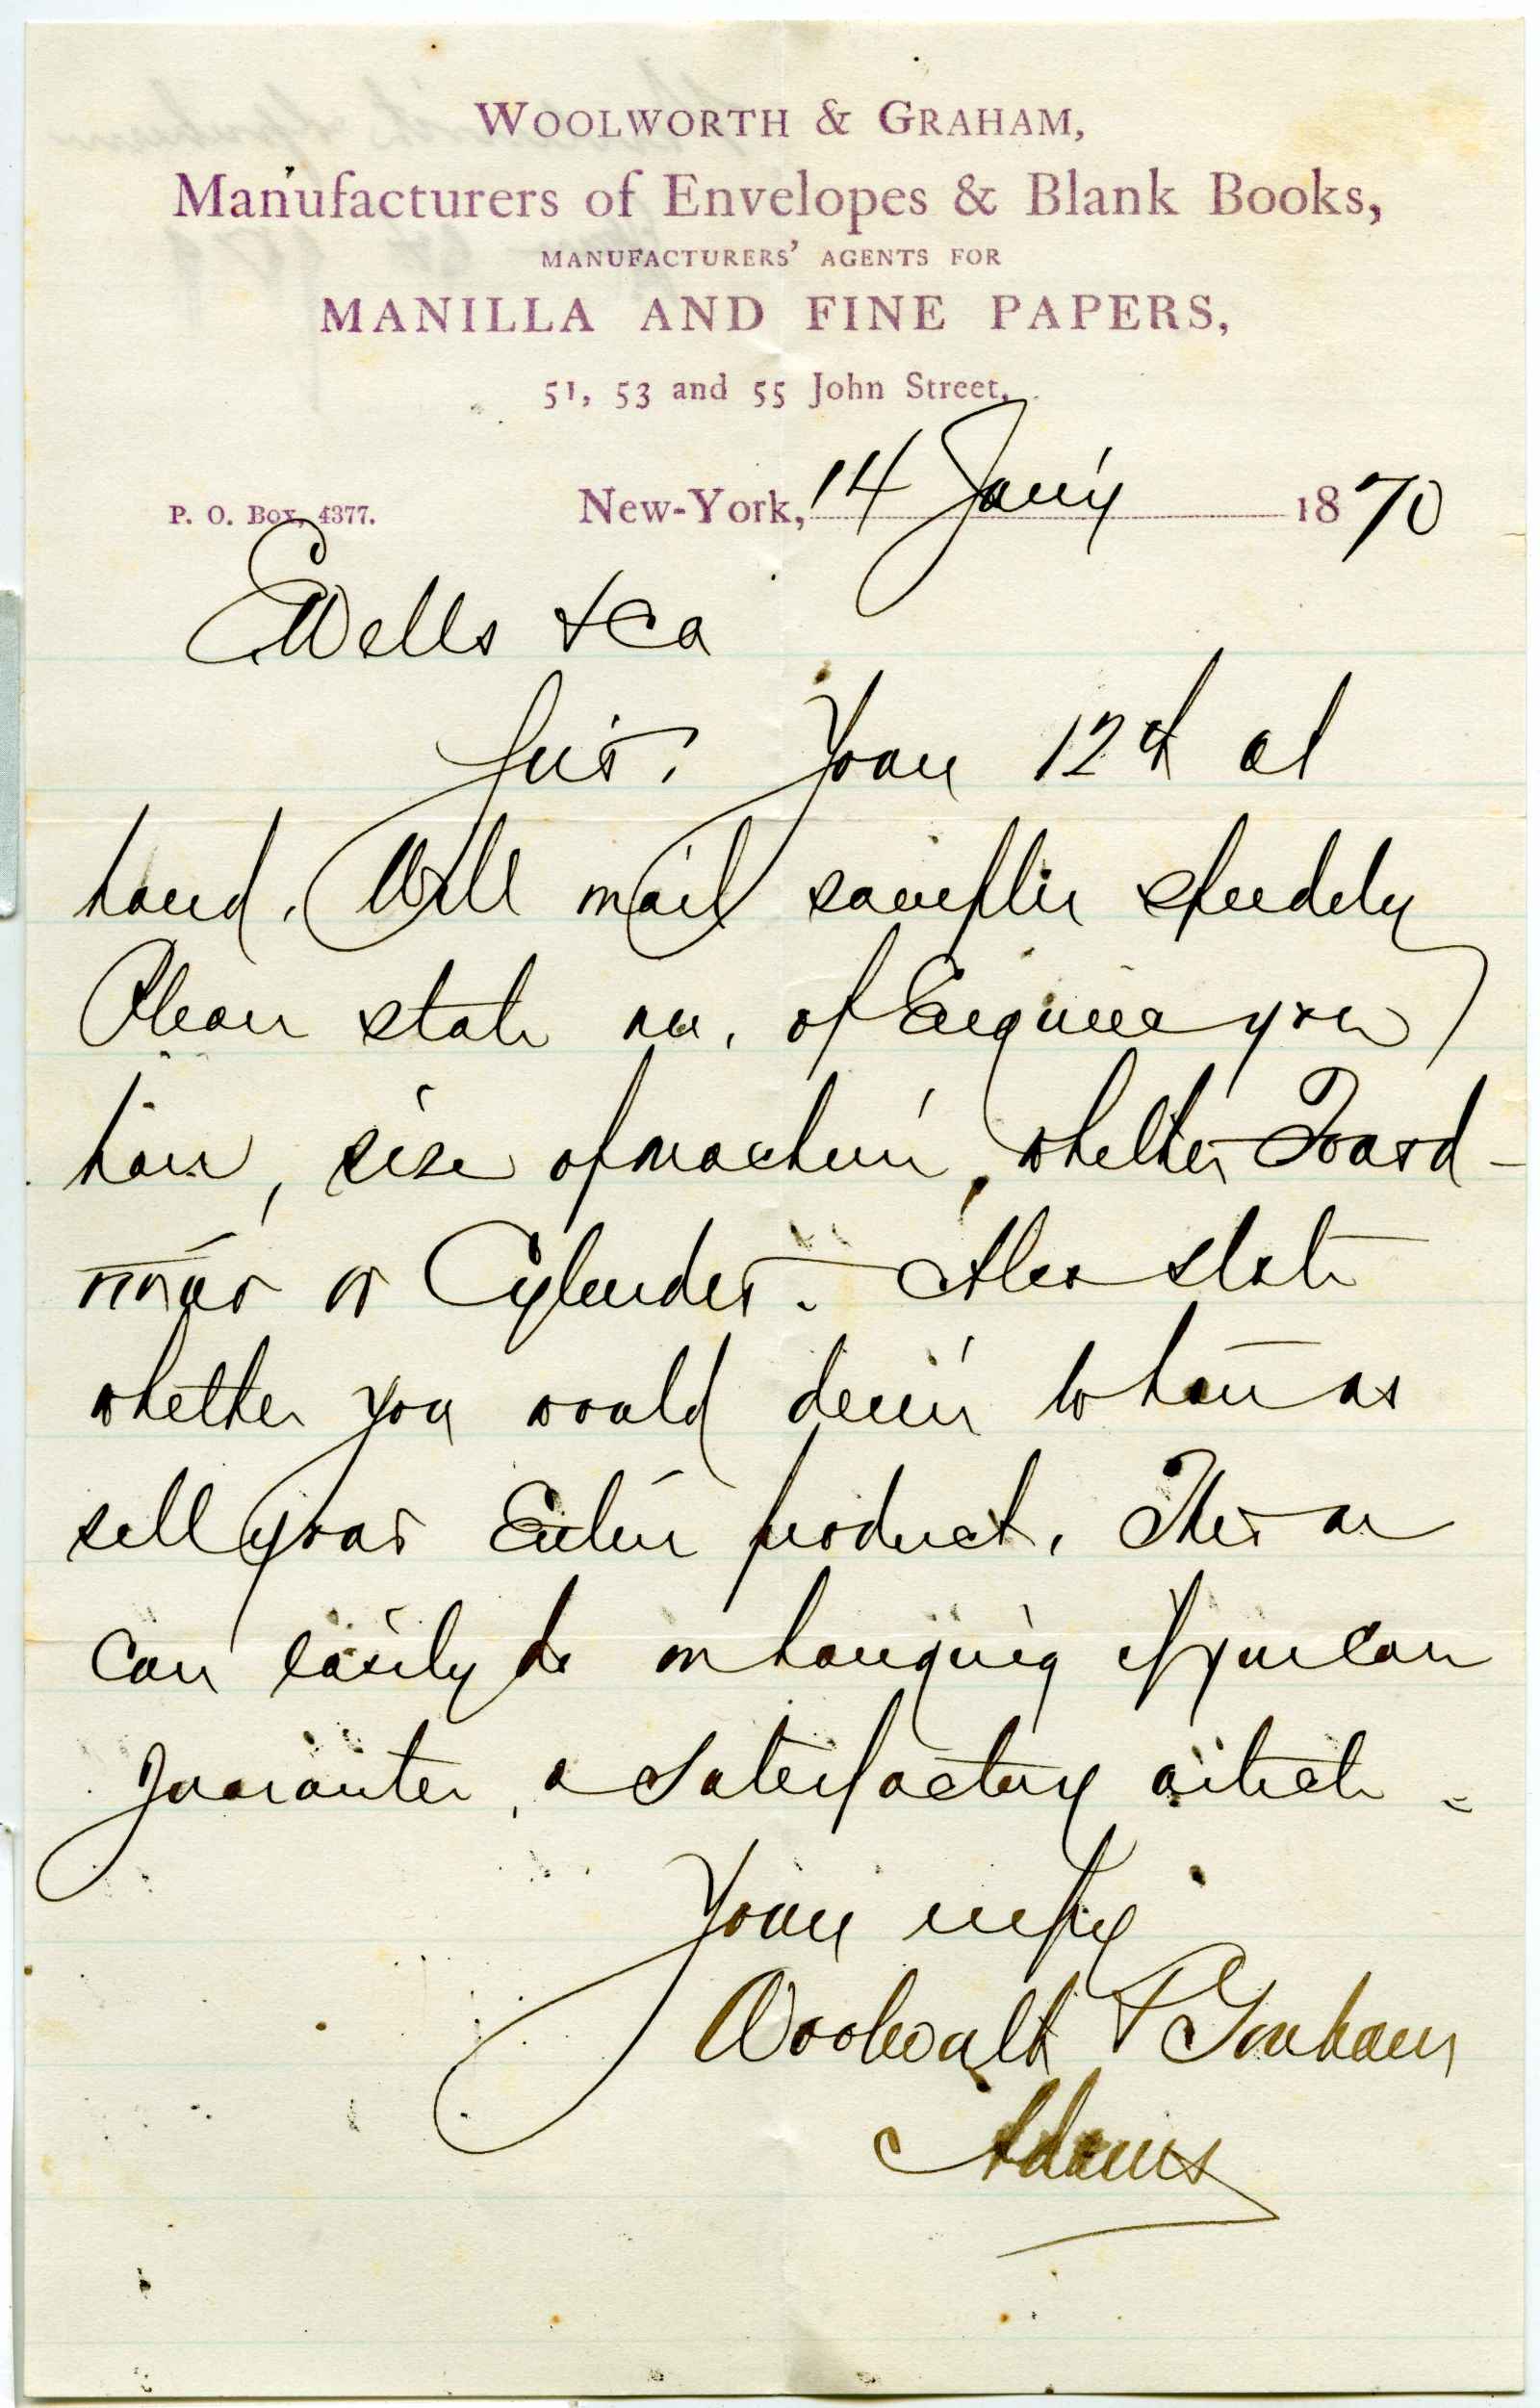 WOOLWORTH & GRAHAM,
Manufacturers of Envelopes & Blank Books,
MANUFACTURERS' AGENTS FOR
MANILLA AND FINE PAPERS,
51, 53 and 55 John Street,
P. O. Box, 4377. New-York, 14 Jan'y 1870
E Wells & Co
Sirs. Yours 12th at
hand. Will mail samples speedily
Please state no. of Engines you
have, size of machine, whether Fourd-
rinier or Cylinder. Also state
whether you would desire to have us
sell your Entire product. This we
can easily do on hanging if you can
guarantee a satisfactory article.
Yours resp'y
Woolworth & Graham
Adams